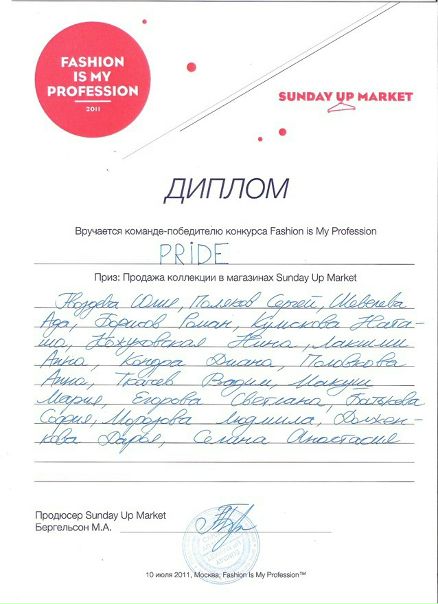 FASHION
IS MY
PROFESSION
2011
SUNDAY UP MARKET
ДИПЛОМ
Вручается команде-победителю конкурса Fashion is My Profession
PRIDE
Приз: Продажа коллекции в магазинах Sunday Up Market
Гвоздева Юлия, Поляков Сергей, Шевелева
Ада, Борисов Роман, Кумскова Ната-
ша, Кожуховская Нина, Лакшми
Анна, Кондра Диана, Половкова
Анна, Ткачев Вадим, Макуш
Мария, Егорова Светлана, Батькова
София, Морозова Людмила, Должен-
кова Дарья, Селина Анастасия
Продюсер Sunday Up Market
Бергельсон М.А.
10 июля 2011, Москва, Fashion Is My Profession™